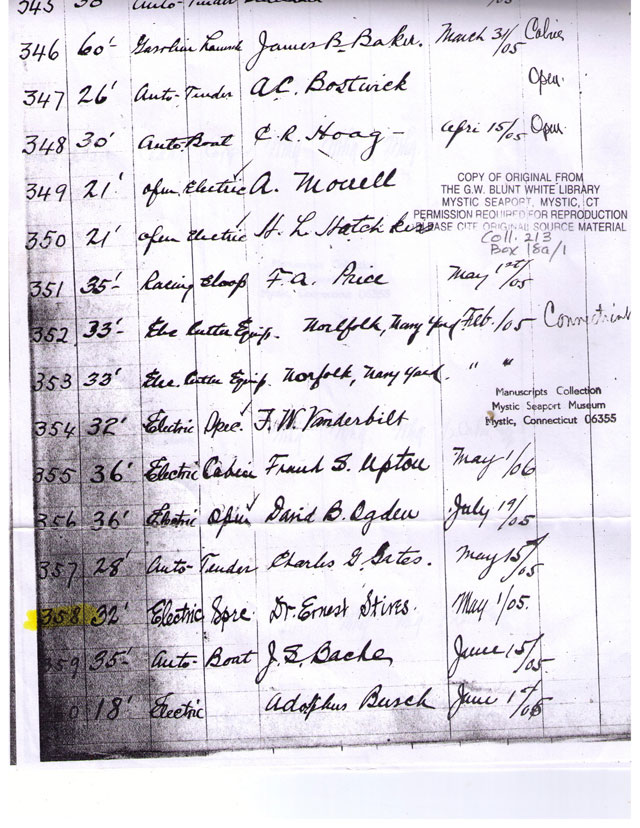 345 30' Auto-Tender
346 60'- Gasoline Launch James B. Baker. March 31/05 Cabin
347 26' Auto-Tender A.C. Bostwick Open.
348 30' Auto Boat C.R. Hoag - April 15/05 Open
349 21' open Electric A. Morrell
COPY OF ORIGINAL FROM
THE G.W. BLUNT WHITE LIBRARY
MYSTIC SEAPORT, MYSTIC, CT
PERMISSION REQUIRED FOR REPRODUCTION
PLEASE CITE ORIGINAL SOURCE MATERIAL
350 21' open Electric H. L. Hotchkiss
Coll. 213
Box 18a/1
351 35'- Racing Sloop F.A. Price May 1st/05
352 33'- Elec Cutter Equip. Norlfolk, Navy Yard Feb. /05
353 33' Elec. Cutter Equip. Norfolk, Navy Yard. " "
Manuscripts Collection
Mystic Seaport Museum
Mystic, Connecticut 06355
354 32' Electric Spec. F.W. Vanderbilt
355 36' Electric Cabin Frank S. Upton May 1/06
356 36' Electric Open David B. Ogden July 19/05
357 28' Auto-Tender Charles G. Gates. May 15/05
358 32' Electric Spec Dr. Ernest Stires. May 1/05.
359 35'- Auto-Boat J.S. Bache June 15/05
0 18' Electric Adophus Busch June 1st/05